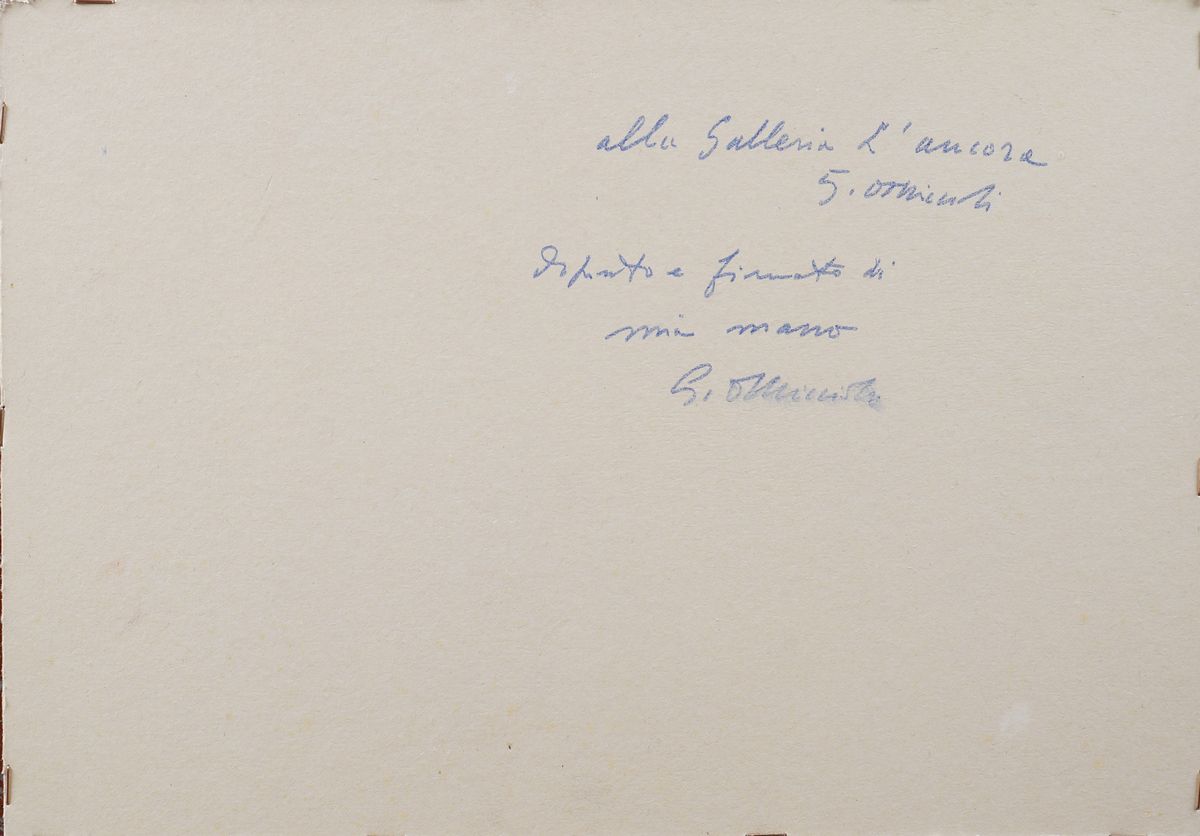 alla Galleria L'ancora
G. Omiccioli
Dipinto e firmato di
mia mano
G. Omiccioli